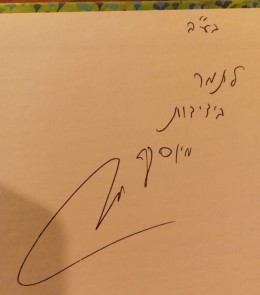 בע"ב
לתמר
בידידות
מיוסף